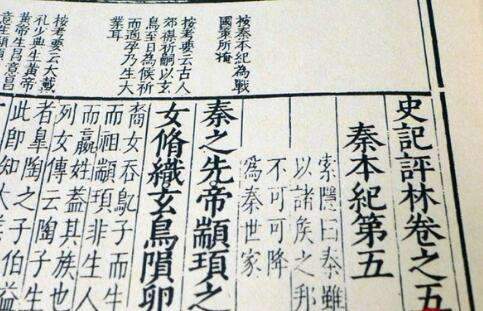 史記評林卷之五
秦本紀第五
索隱曰秦雖
以諸侯之邦
不可可降
為秦世家
秦之先帝顓頊之
女脩織玄鳥隕卵
裔女吞鳦子而生
而祖顓頊非生人
而嬴姓蓋其族也
列女傳云陶子生
者皐陶之子伯益
此即知大業
按秦本紀為戰
國策所
按考要云古人
郊禖祈嗣以玄
鳥至日為候祈
而適孕乃生大
業耳
按考要云大戴
孔少典生黃帝
黃帝生昌意昌
意生顓頊